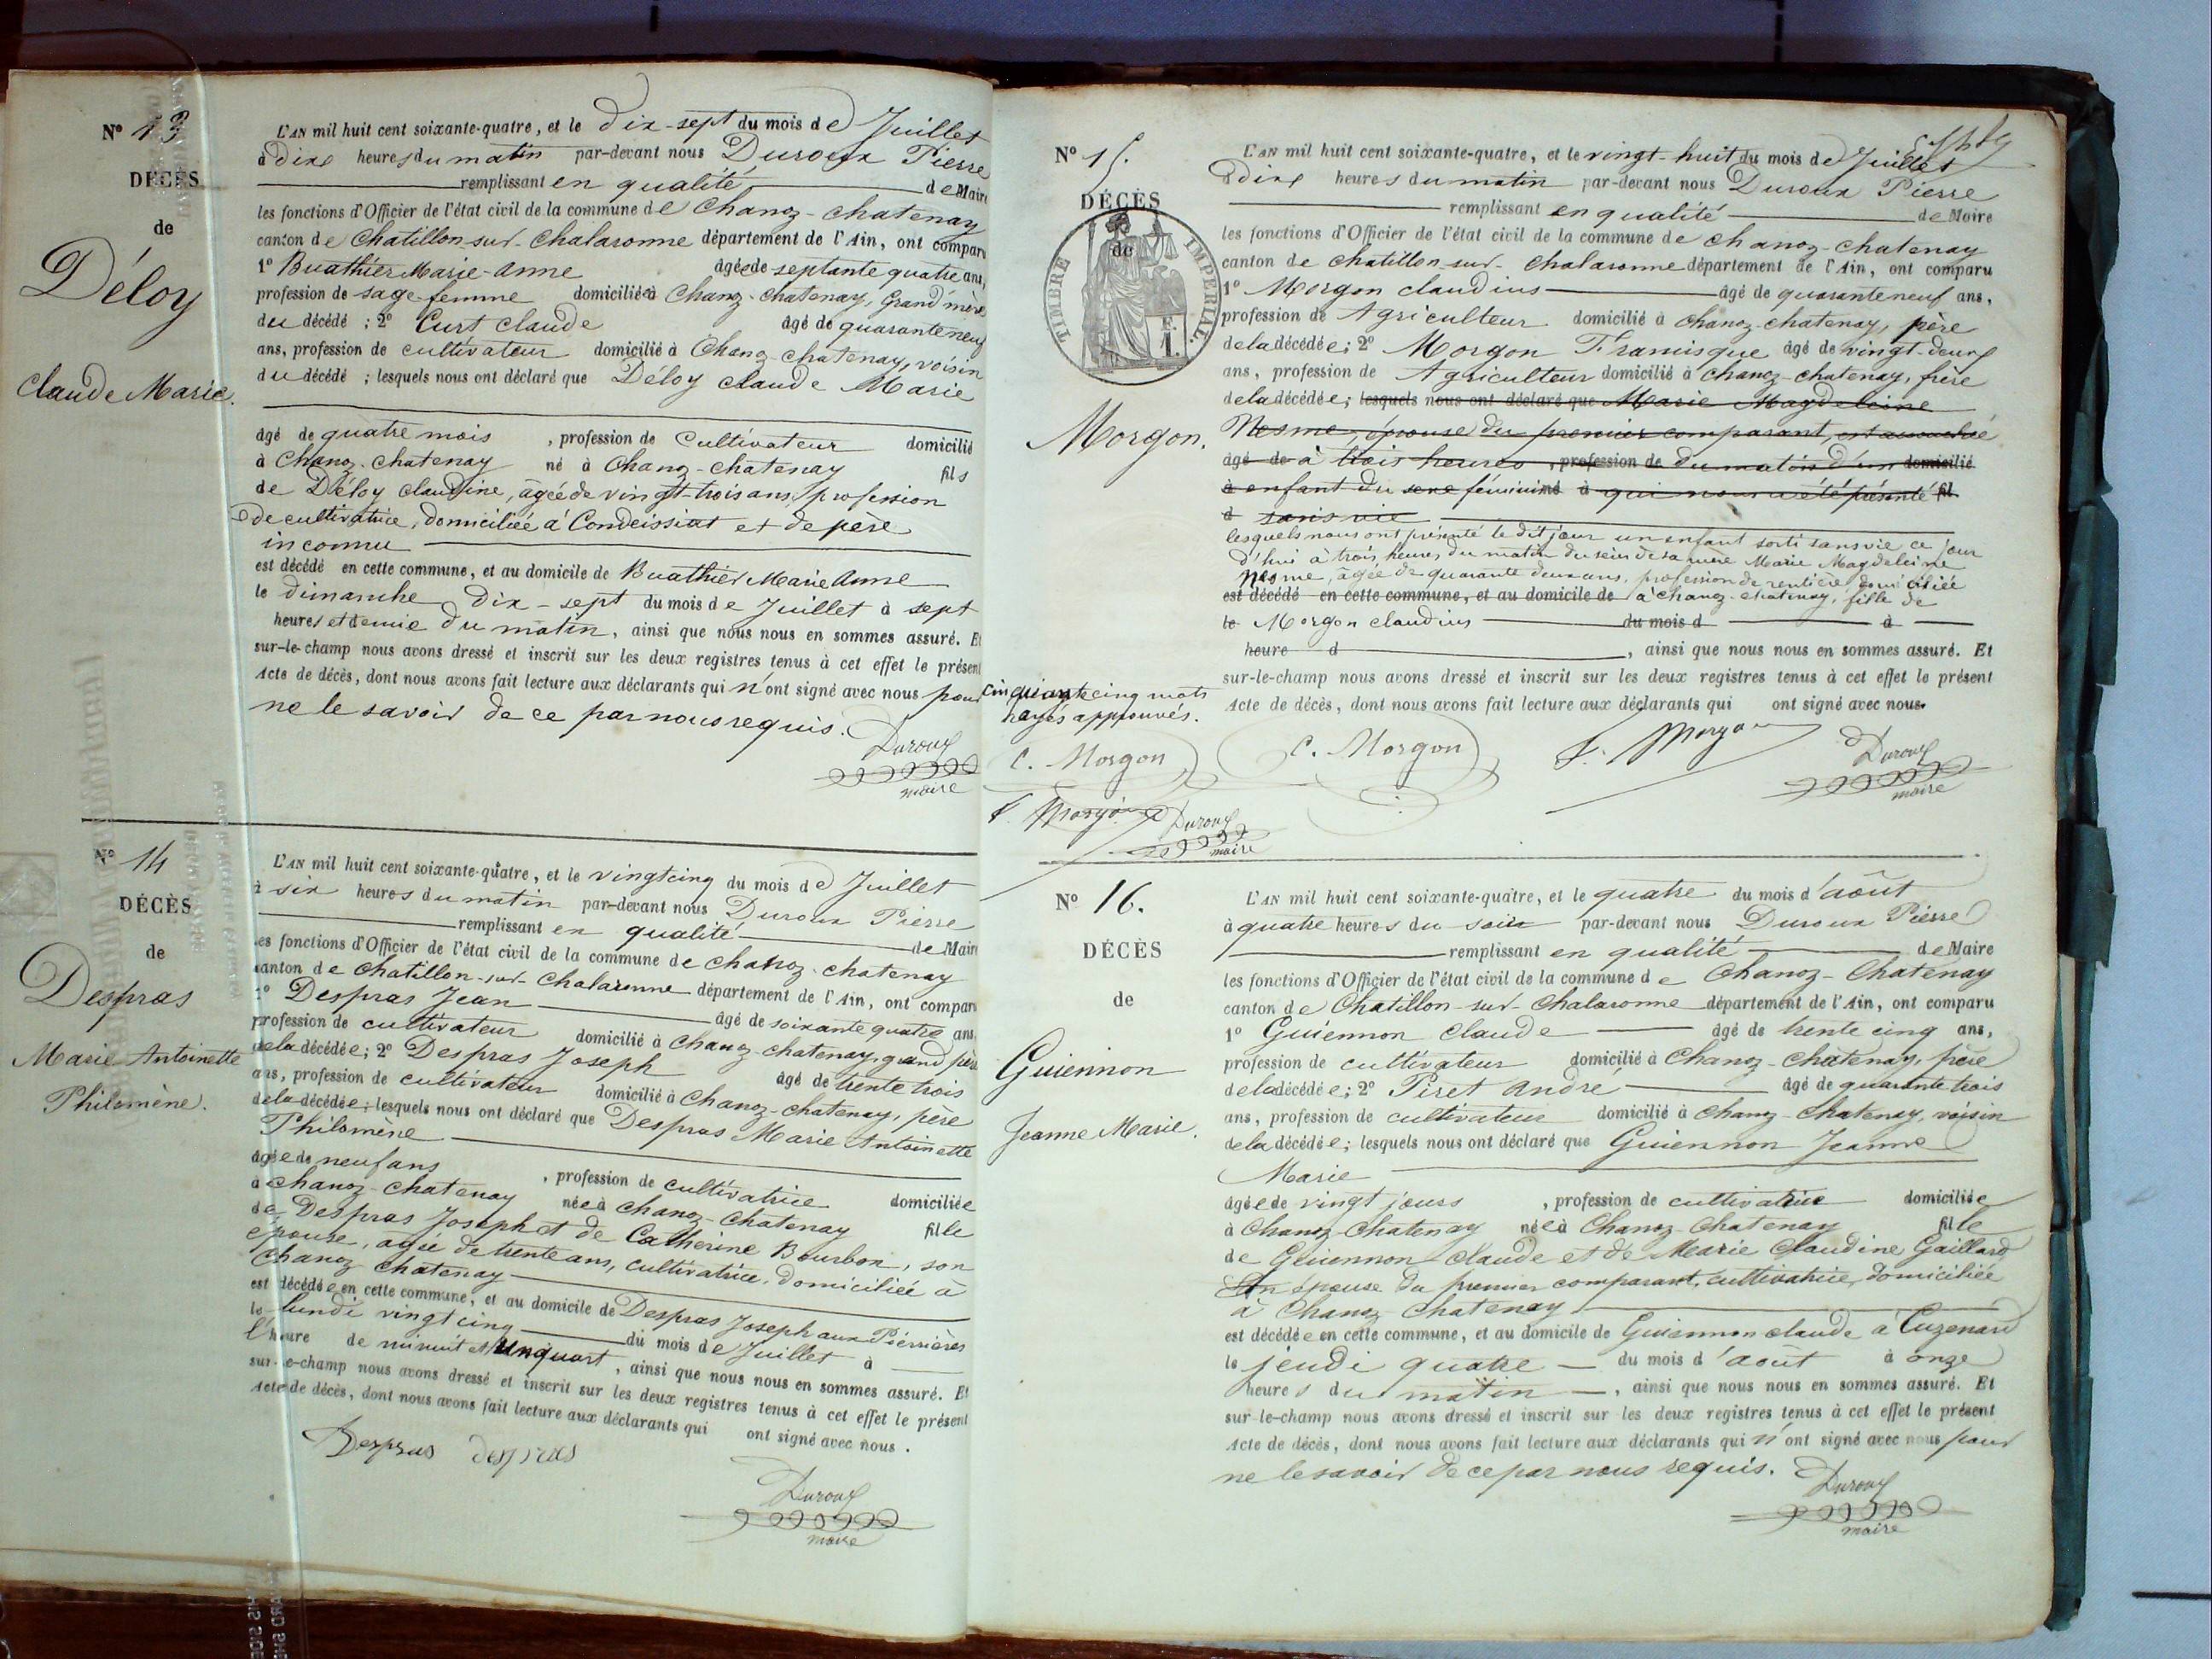 N° 13
DÉCÈS
de
Déloy
Claude Marie.
L'AN mil huit cent soixante-quatre, et le Dix-sept du mois de Juillet
à dix heures du matin par-devant nous Duroux Pierre
remplissant en qualité de Maire
les fonctions d'Officier de l'état civil de la commune de Chanoz-chatenay
canton de Chatillon-sur-Chalaronne département de l'Ain, ont comparu
1° Buathier Marie-Anne âgée de septante quatre ans,
profession de sage-femme domiciliée à Chanoz-chatenay, Grand'mère
du décédé ; 2° Curt Claude âgé de quarante neuf
ans, profession de cultivateur domicilié à Chanoz-chatenay, voisin
du décédé ; lesquels nous ont déclaré que Déloy Claude Marie
âgé de quatre mois , profession de Cultivateur domicilié
à Chanoz-chatenay né à Chanoz-chatenay fils
de Déloy Claudine, âgée de vingt-trois ans, profession
de cultivatrice, domiciliée à Condeissiat et de père
inconnu
est décédé en cette commune, et au domicile de Buathier Marie Anne
le dimanche dix-sept du mois de Juillet à sept
heures et demie du matin, ainsi que nous nous en sommes assuré. Et
sur-le-champ nous avons dressé et inscrit sur les deux registres tenus à cet effet le présent
Acte de décès, dont nous avons fait lecture aux déclarants qui n'ont signé avec nous pour
ne le savoir de ce par nous requis.
Duroux
maire
N° 14
DÉCÈS
de
Despras
Marie Antoinette
Philomène.
L'AN mil huit cent soixante-quatre, et le vingt cinq du mois de Juillet
à six heures du matin par-devant nous Duroux Pierre
remplissant en qualité de Maire
les fonctions d'Officier de l'état civil de la commune de Chanoz-chatenay
canton de Chatillon-sur-Chalaronne département de l'Ain, ont comparu
1° Despras Jean âgé de soixante quatre ans,
profession de cultivateur domicilié à Chanoz-chatenay, grand père
de la décédée; 2° Despras Joseph âgé de trente trois
ans, profession de cultivateur domicilié à Chanoz-chatenay, père
de la décédée; lesquels nous ont déclaré que Despras Marie Antoinette
Philomène
âgée de neuf ans , profession de cultivatrice domiciliée
à Chanoz-Chatenay née à Chanoz-Chatenay fille
de Despras Joseph et de Catherine Bourbon, son
épouse, agée de trente ans, cultivatrice, domiciliée à
Chanoz Chatenay
est décédée en cette commune, et au domicile de Despras Joseph aux Pérrières
le lundi vingt cinq du mois de Juillet à
l'heure de minuit et un quart, ainsi que nous nous en sommes assuré. Et
sur-le-champ nous avons dressé et inscrit sur les deux registres tenus à cet effet le présent
Acte de décès, dont nous avons fait lecture aux déclarants qui ont signé avec nous.
Despras despras
Duroux
maire
N° 15.
DÉCÈS
de
TIMBRE IMPÉRIAL
F.
1.
Morgon.
L'AN mil huit cent soixante-quatre, et le vingt-huit du mois de Juillet
à dix heures du matin par-devant nous Duroux Pierre
remplissant en qualité de Maire
les fonctions d'Officier de l'état civil de la commune de Chanoz-chatenay
canton de Chatillon-sur-Chalaronne département de l'Ain, ont comparu
1° Morgon claudius âgé de quarante neuf ans,
profession de Agriculteur domicilié à Chanoz-chatenay, père
de la décédée; 2° Morgon Francisque âgé de vingt-deux
ans, profession de Agriculteur domicilié à Chanoz-chatenay, frère
de la décédée; lesquels nous ont déclaré que Marie Magdeleine
Nesme, épouse du premier comparant, est accouchée
âgé de à trois heures , profession de du matin d'un domicilié
à enfant du sexe féminin né à qui nous a été présenté fil
d sans vie
lesquels nous ont présenté le dit jour un enfant sorti sans vie ce jour
d'hui à trois heures du matin du sein de sa mère Marie Magdeleine
Nesme, âgée de quarante deux ans, profession de rentière, domiciliée
est décédé en cette commune, et au domicile de à Chanoz-chatenay, fille de
le Morgon claudius du mois d à
heure d , ainsi que nous nous en sommes assuré. Et
sur-le-champ nous avons dressé et inscrit sur les deux registres tenus à cet effet le présent
Acte de décès, dont nous avons fait lecture aux déclarants qui ont signé avec nous.
Cinquante cinq mots
rayés approuvés.
C. Morgon C. Morgon F. Morgon Duroux
maire
F. Morgon Duroux
maire
N° 16.
DÉCÈS
de
Guiennon
Jeanne Marie.
L'AN mil huit cent soixante-quatre, et le quatre du mois d'août
à quatre heures du soir par-devant nous Duroux Pierre
remplissant en qualité de Maire
les fonctions d'Officier de l'état civil de la commune de Chanoz-Chatenay
canton de Chatillon-sur-Chalaronne département de l'Ain, ont comparu
1° Guiennon Claude âgé de trente cinq ans,
profession de cultivateur domicilié à Chanoz-Chatenay, père
de la décédée; 2° Piret André âgé de quarante trois
ans, profession de cultivateur domicilié à Chanoz-Chatenay, voisin
de la décédée; lesquels nous ont déclaré que Guiennon Jeanne
Marie
âgée de vingt jours , profession de cultivatrice domiciliée
à Chanoz-Chatenay née à Chanoz Chatenay fille
de Guiennon Claude et de Marie Claudine Gaillard
épouse du premier comparant, cultivatrice, domiciliée
à Chanoz Chatenay
est décédée en cette commune, et au domicile de Guiennon claude à Cuzenard
le jeudi quatre du mois d'août à onze
heures du matin , ainsi que nous nous en sommes assuré. Et
sur-le-champ nous avons dressé et inscrit sur les deux registres tenus à cet effet le présent
Acte de décès, dont nous avons fait lecture aux déclarants qui n'ont signé avec nous pour
ne le savoir de ce par nous requis.
Duroux
maire